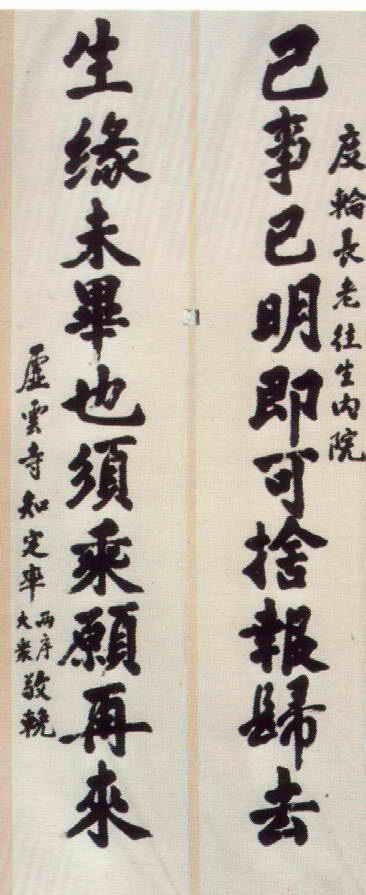 度輪長老往生內院
己事已明即可捨報歸去
生緣未畢也須乘願再來
虛雲寺知定率兩序大衆敬輓